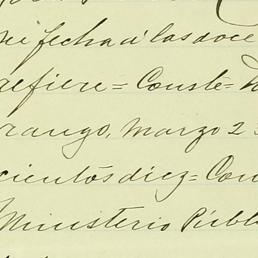 fecha á las doce
refiere = Conste =
rango, Marzo 2
cientos diez = Con
Ministerio Públ